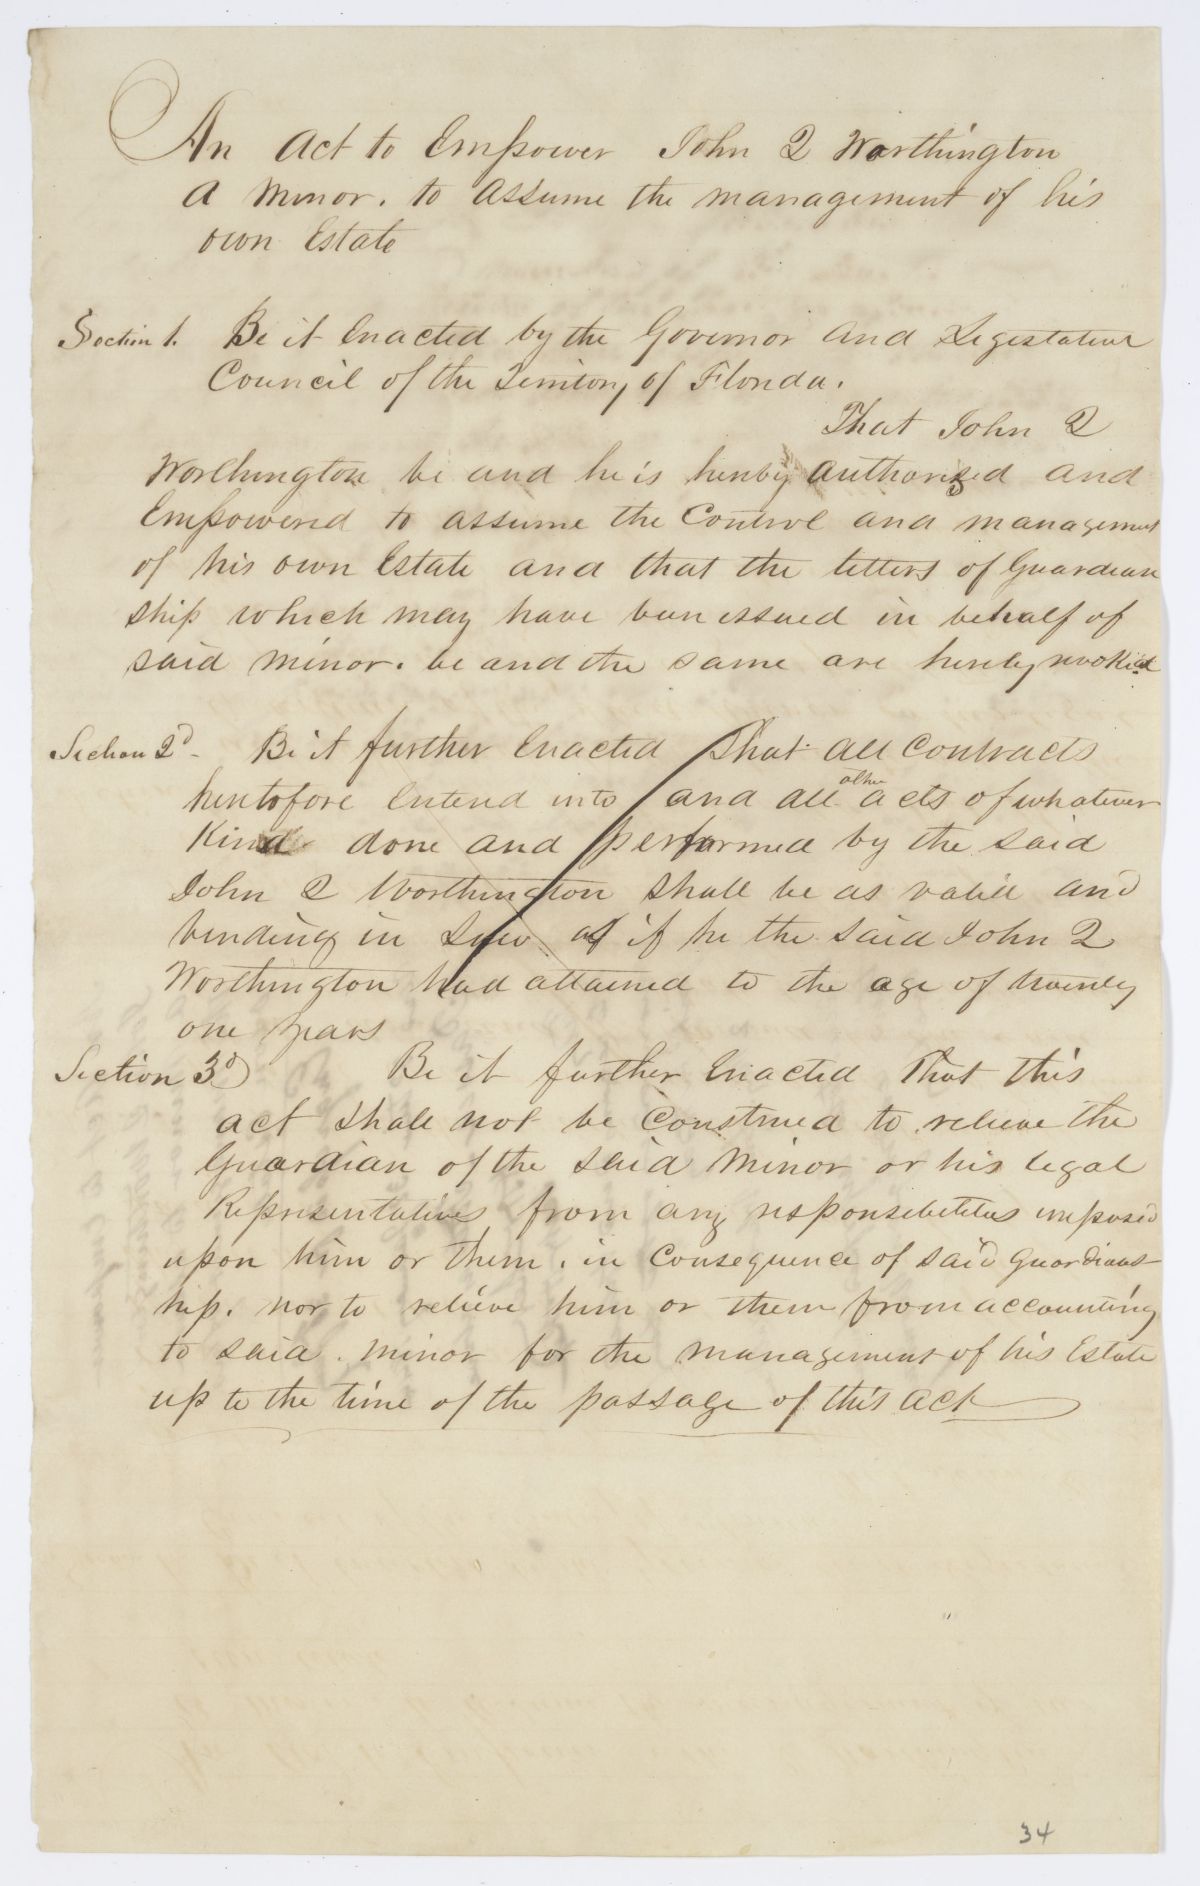 An Act to Empower John Q Worthington
A Minor. to Assume the management of his
own Estate
Section 1. Be it Enacted by the Governor and Legestative
Council of the Territory of Florida.
That John Q
Worthington be and he is hereby authorized and
Empowered to assume the Control and management
of his own Estate and that the letters of Guardian
ship which may have been issued in behalf of
said minor. be and the same are hereby revoked
Section 2d - Be it further Enacted That all Contracts
heretofore Entered into and all other acts of whatever
Kind done and performed by the said
John Q Worthington shall be as valid and
binding in Law as if he the said John Q
Worthington had attained to the age of twenty
one years
Section 3d Be it further Enacted That this
act shall not be Construed to relieve the
Guardian of the said Minor or his legal
Representatives from any responsibilities imposed
upon him or them. in Consequence of said Guardians
hip. nor to relieve him or them from accounting
to said. minor for the management of his Estate
up to the time of the passage of this act
34